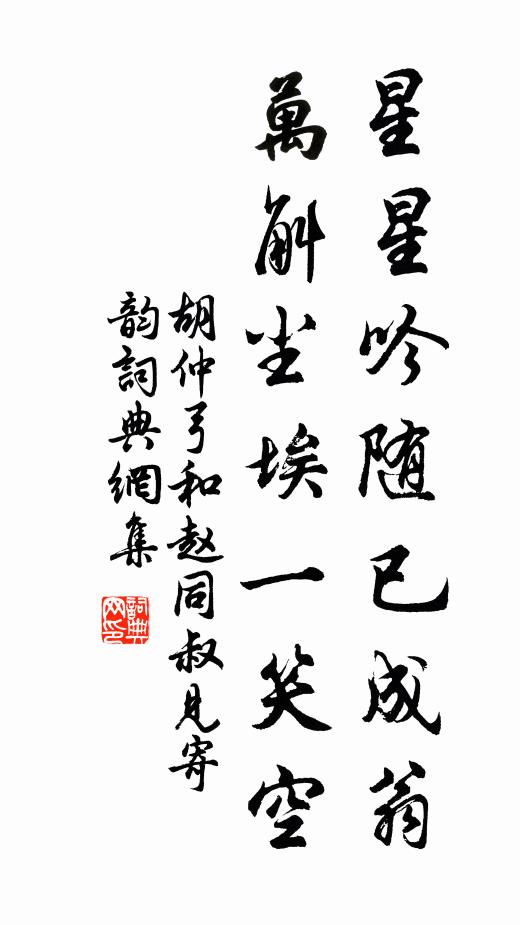 星星吟随已成翁
萬斛尘埃一笑空
胡仲弓和赵同叔見寄
韵詞典網集
詞典
网印